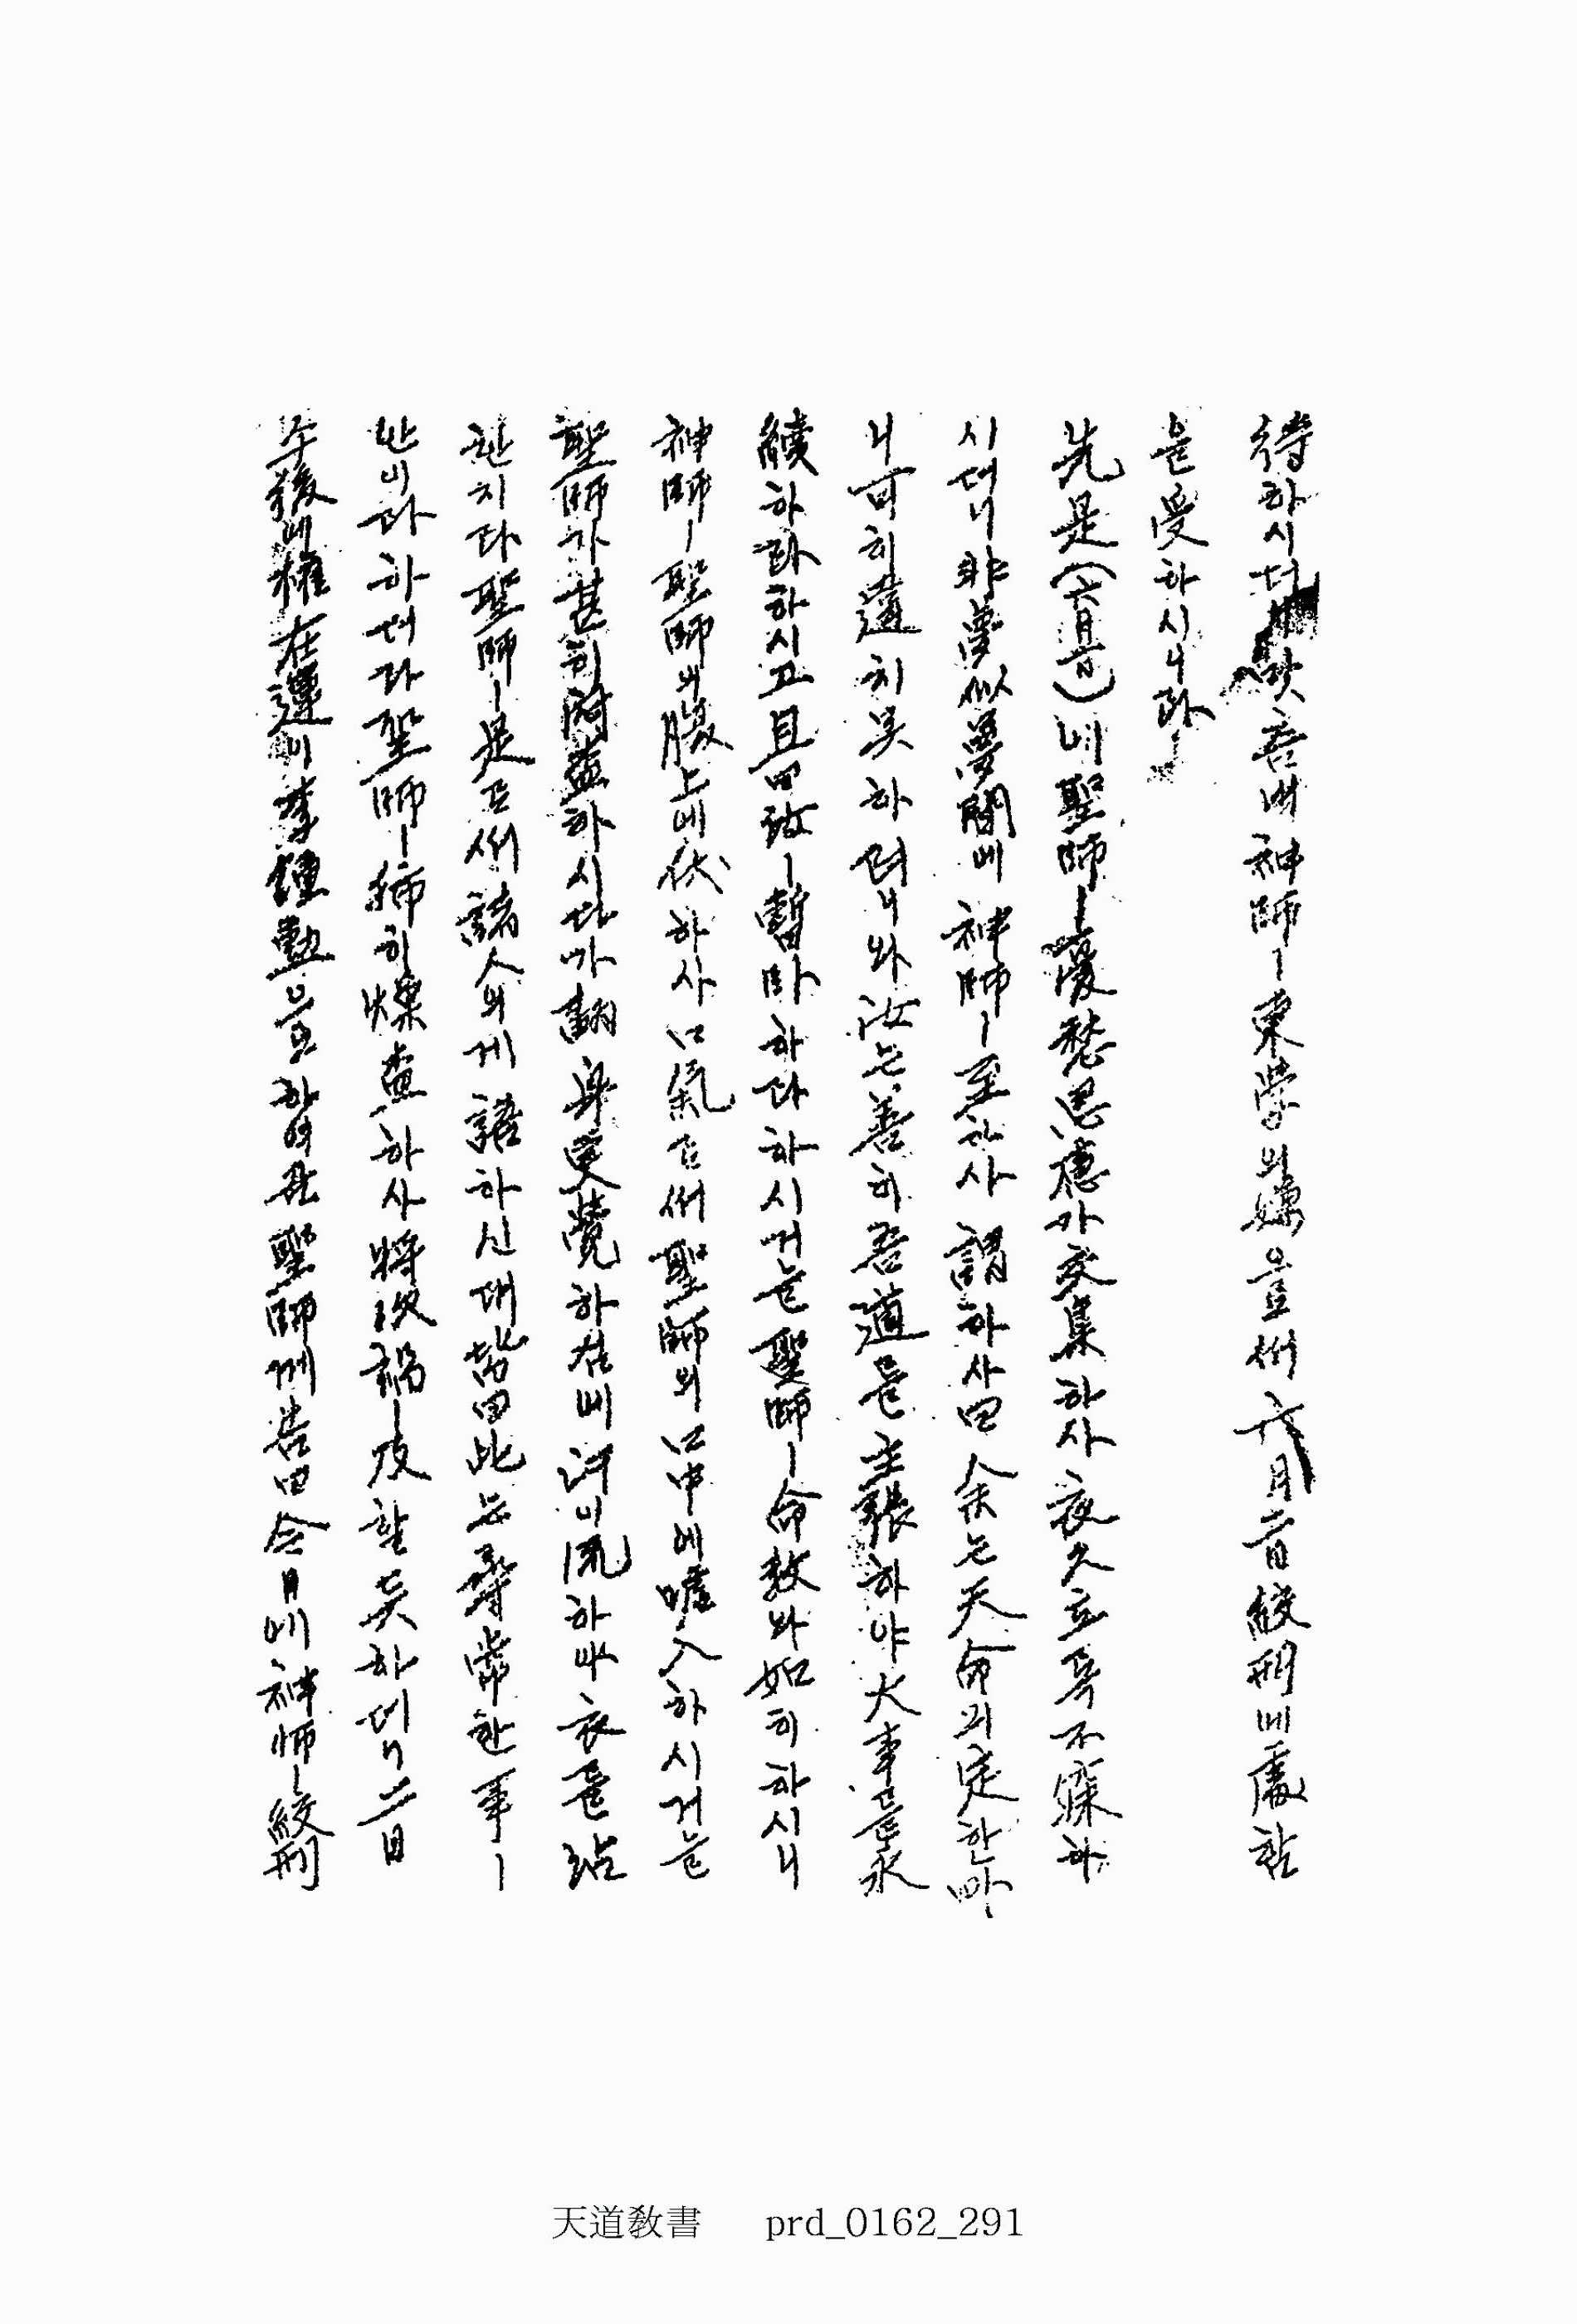 待하시더니 吾大神師ㅣ 東學의 嫌으로써 六月二日 絞刑에 處함
을 受하시니라
先是(六月一日)에 聖師ㅣ 憂愁思慮가 交集하사 夜久토록 不寐하
시더니 非夢似夢間에 神師ㅣ 至하사 謂하사曰 余는 天命의 定한 바
니 可히 違치 못하려니와 汝는 善히 吾道를 主張하야 大事를 永
續하라 하시고 且曰 汝ㅣ 暫臥하라 하시거늘 聖師ㅣ 命敎와 如히 하시니
神師ㅣ 聖師의 腹上에 伏하사 口氣로써 聖師의 口中에 噓入하시거늘
聖師가 甚히 하시다가 飜身更覺하심에 汗이 流하야 衣를 沾
한지라 聖師ㅣ 是로써 諸人의게 語하신대 皆曰 此는 尋常한 事ㅣ
안이라 하더라 聖師ㅣ 獨히 燥 하사 將次 禍ㅣ 及할 듯하더니 二日
午後에 權在運이 李鍾勳으로 하여곰 聖師께 告曰 今日에 神師ㅣ 絞刑
天道敎書 prd_0162_291